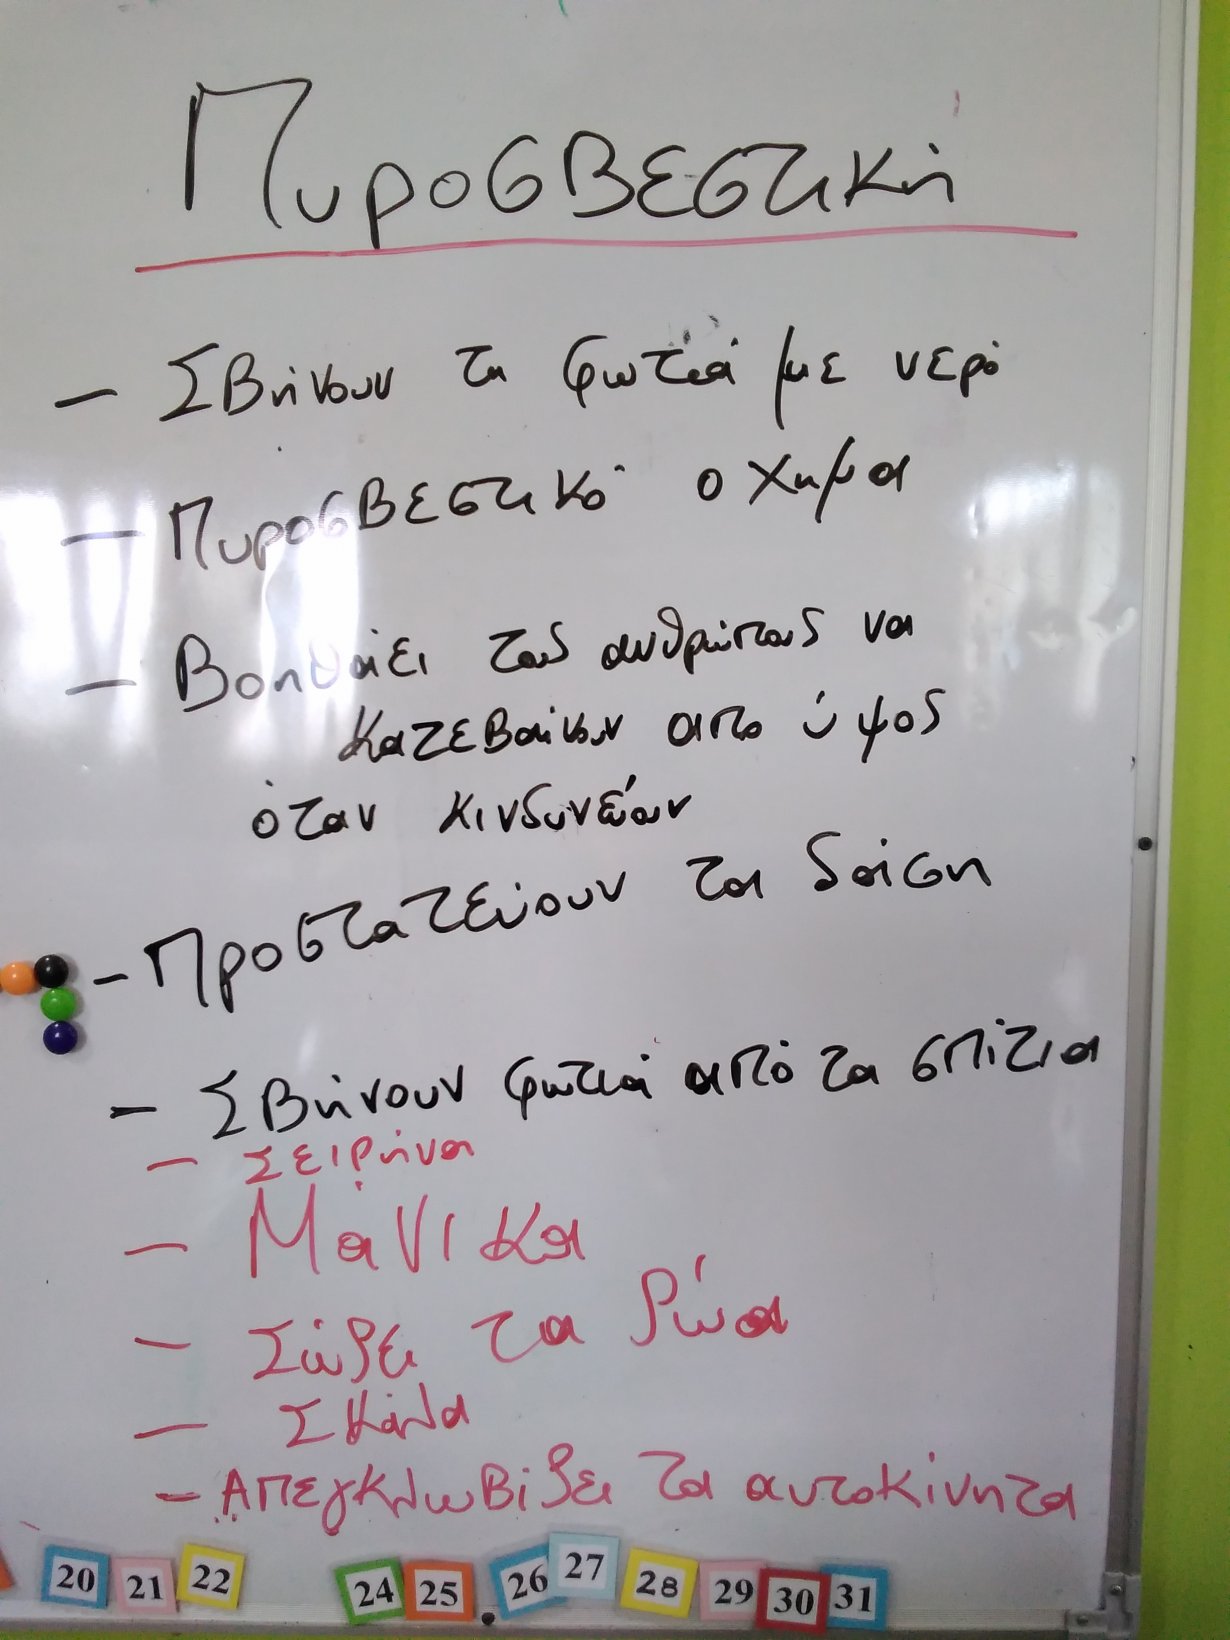 Πυροσβεστική
- Σβήνουν τη φωτιά με νερό
- Πυροσβεστικό όχημα
- Βοηθάει τους ανθρώπους να
κατεβαίνουν από ύψος
όταν κινδυνεύουν
- Προστατεύουν τα δάση
- Σβήνουν φωτιά από τα σπίτια
- Σειρήνα
- Μάνικα
- Σώζει τα ζώα
- Σκάλα
- Απεγκλωβίζει τα αυτοκίνητα
20 21 22 24 25 26 27 28 29 30 31